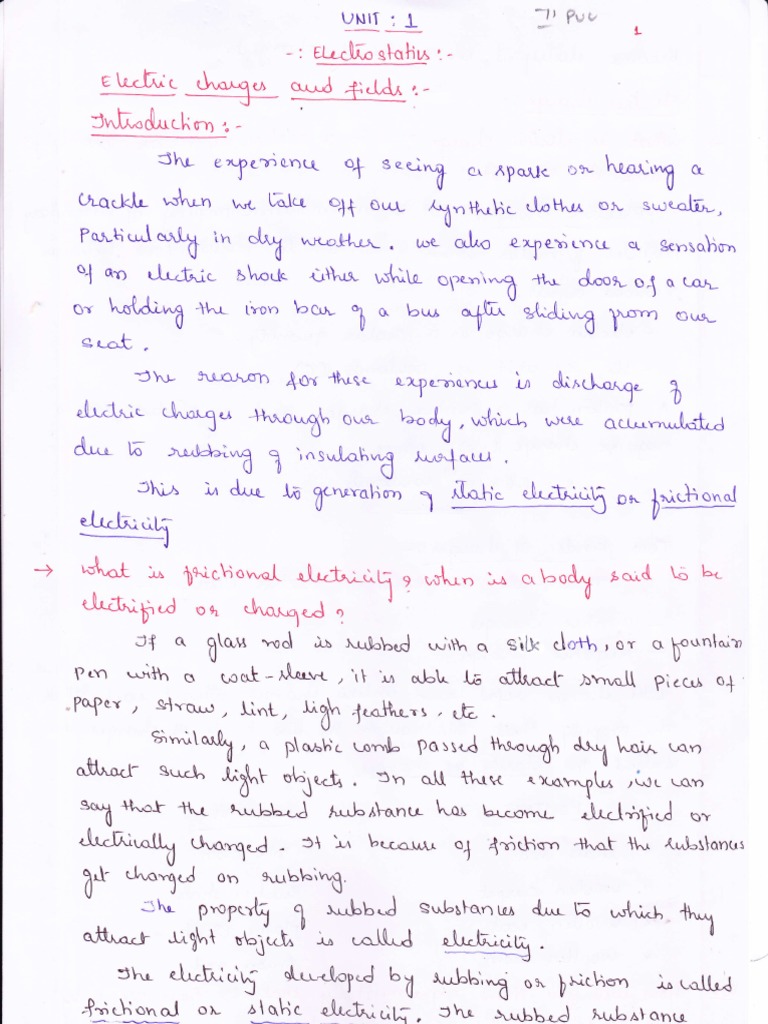 UNIT : 1
II PUC
1
-: Electrostatics :-
Electric charges and fields :-
Introduction :-
The experience of seeing a spark or hearing a
crackle when we take off our synthetic clothes or sweater,
Particularly in dry weather. we also experience a sensation
of an electric shock either while opening the door of a car
or holding the iron bar of a bus after sliding from our
seat.
The reason for these experiences is discharge of
electric charges through our body, which were accumulated
due to rubbing of insulating surfaces.
This is due to generation of static electricity or frictional
electricity
→ what is frictional electricity? when is a body said to be
electrified or charged?
If a glass rod is rubbed with a silk cloth, or a fountain
pen with a coat-sleeve, it is able to attract small pieces of
paper, straw, lint, ligh feathers. etc.
Similarly, a plastic comb passed through dry hair can
attract such light objects. In all these examples, we can
say that the rubbed substance has become electrified or
electrically charged. It is because of friction that the substances
get charged on rubbing.
The property of rubbed substances due to which, they
attract light objects is called electricity.
The electricity developed by rubbing or friction is called
frictional or static electricity. The rubbed substance